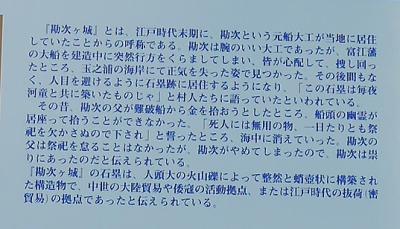 『勘次ヶ城』とは、江戸時代末期に、勘次という元船大工が当地に居住
していたことからの呼称である。勘次は腕のいい大工であったが、富江藩
の大船を建造中に突然行方をくらましてしまい、皆が心配して、捜し回っ
たところ、玉之浦の海岸にて正気を失った姿で見つかった。その後間もな
く、人目を避けるように石塁跡に居住するようになり、「この石塁は毎夜
河童と共に築いたものじゃ」と村人たちに語っていたといわれている。
その昔、勘次の父が難破船から金を拾おうとしたところ、船頭の幽霊が
居座って拾うことができなかった。「死人には無用の物、一日たりとも祭
祀を欠かさぬので下され」と誓ったところ、海中に消えていった。勘次の
父は祭祀を怠ることはなかったが、勘次がやめてしまったので、勘次は祟
りにあったのだと伝えられている。
『勘次ヶ城』の石塁は、人頭大の火山礫によって整然と蛸壺状に構築され
た構造物で、中世の大陸貿易や倭寇の活動拠点、または江戸時代の抜荷（密
貿易）の拠点であったと伝えられている。